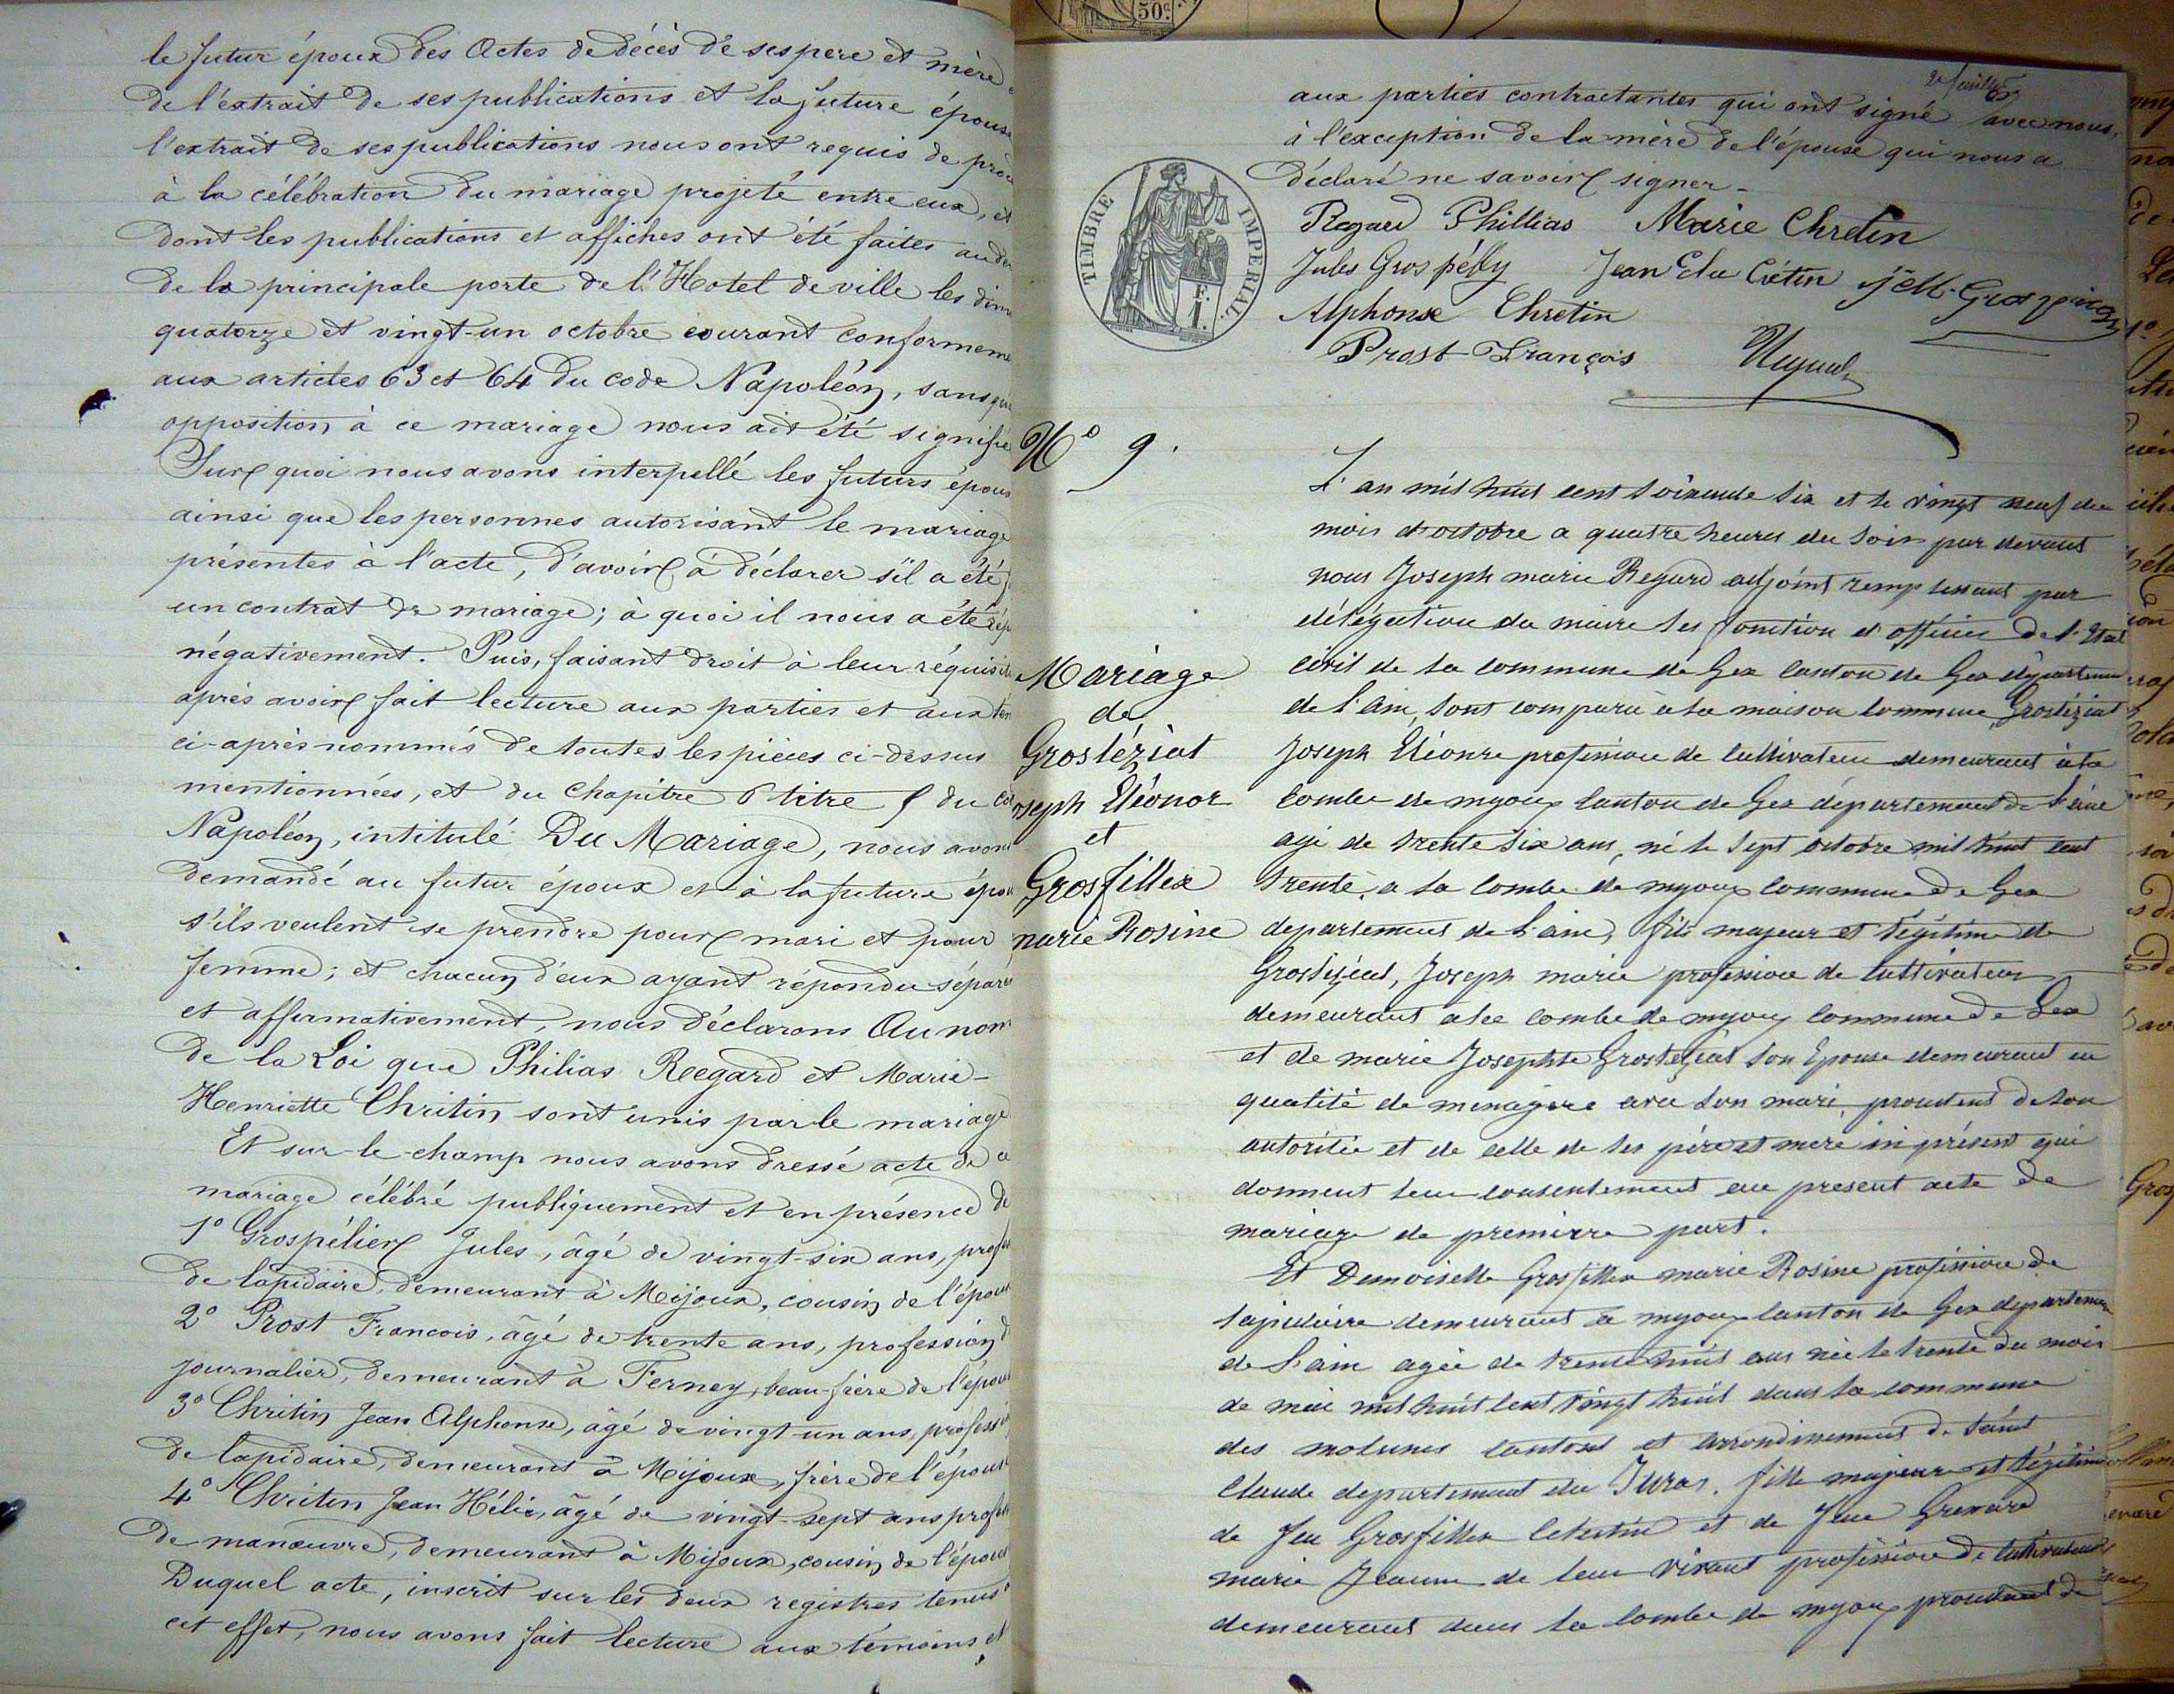 le futur époux des Actes de décès de ses pere et mère
de l'extrait de ses publications et la future épouse
l'extrait de ses publications nous ont requis de
à la célébration du mariage projeté entre eux, et
dont les publications et affiches ont été faites
de la principale porte de l'Hotel de ville les
quatorze et vingt-un octobre courant
aux articles 63 et 64 du code Napoléon, sans
opposition à ce mariage nous ait été
Sur quoi nous avons interpellé les futurs
ainsi que les personnes autorisant le mariage
présentes à l'acte, d'avoir à déclarer s'il a été
un contrat de mariage; à quoi il nous a été
négativement. Puis, faisant droit à leur
après avoir fait lecture aux parties et aux
ci-après nommés de toutes les pièces ci-dessus
mentionnées, et du Chapitre 6 titre 5 du
Napoléon, intitulé Du Mariage, nous avons
demandé au futur époux et à la future
s'ils veulent se prendre pour mari et pour
femme; et chacun d'eux ayant répondu
et affirmativement, nous déclarons Au nom
de la Loi que Philias Regard et Marie-
Henriette Chritin sont unis par le mariage
Et sur-le-champ nous avons dressé acte de ce
mariage célébré publiquement et en présence de
1º Grospélier Jules, âgé de vingt-six ans,
de lapidaire, demeurant à Mijoux, cousin de
2º Prost Francois, âgé de trente ans, profession
journalier, demeurant à Ferney, beau-frère de
3º Chritin Jean Alphonse, âgé de vingt-un ans,
de lapidaire, demeurant à Mijoux, frère de l'épouse
4º Chritin Jean Hélie, âgé de vingt-sept ans
de manœuvre, demeurant à Mijoux, cousin de
Duquel acte, inscrit sur les deux registres tenus
cet effet, nous avons fait lecture aux témoins et
50c.
aux parties contractantes qui ont signé avec nous,
à l'exception de la mère de l'épouse qui nous a
déclaré ne savoir signer.
TIMBRE IMPERIAL
F. 1.
Regard Phillias Marie Chretin
Jules Grospélly Jean Elie Crétin
Alphonse Chretin
Prost François
Nº 9.
Mariage
de
Grostéziat
oseph Eléonor
et
Grosfillex
marie Rosine
L'an mil huit cent soixante six et le vingt neuf du
mois d'octobre a quatre heures du soir par devant
nous Joseph marie Regard adjoint remplissant par
délégation du maire les fonction d'officier de l'Etat
civil de la commune de Gex canton de Gex
de l'Ain, sont comparu à la maison commune Grostéziat
Joseph Eléonre profession de cultivateur demeurant à la
combe de myoux canton de Gex département de l'ain
agé de trente six ans, né le sept octobre mil huit cent
trente, a la combe de myoux commune de Gex
departement de l'ain, fils majeur et légitime de
Grostéziat, Joseph marie profession de cultivateur
demeurant a la combe de myoux commune de Gex
et de marie Josephte Grosteziat son Epouse demeurant en
qualité de menagere avec son mari, procedent de son
autoritée et de celle de ses père et mere ici présent qui
donnent leur consentement au present acte de
mariage de premirre part.
Et Demoiselle Grosfillex marie Rosine profession de
lapidaire demeurant a myoux canton de Gex
de l'ain agée de trente huit ans née le trente du mois
de mai mil huit cent vingt huit dans la commune
des molunes canton et arrondissement de saint
Claude departement du Juras. fille majeure et légitime
de feu Grosfillex Celestin et de feue Grenard
marie Jeanne de leur vivant profession de cultivateurs
demeurant dans la combe de myoux procedent de